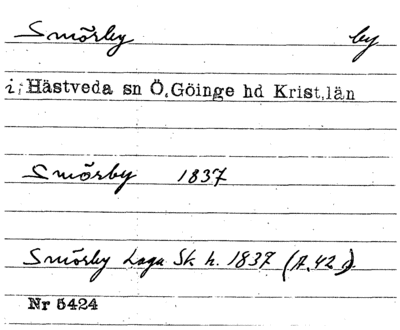 Smörby by
i; Hästveda sn Ö.Göinge hd Krist.län
Smörby 1837
Smörby Laga Sk h. 1837 (A.42).
Nr 5424